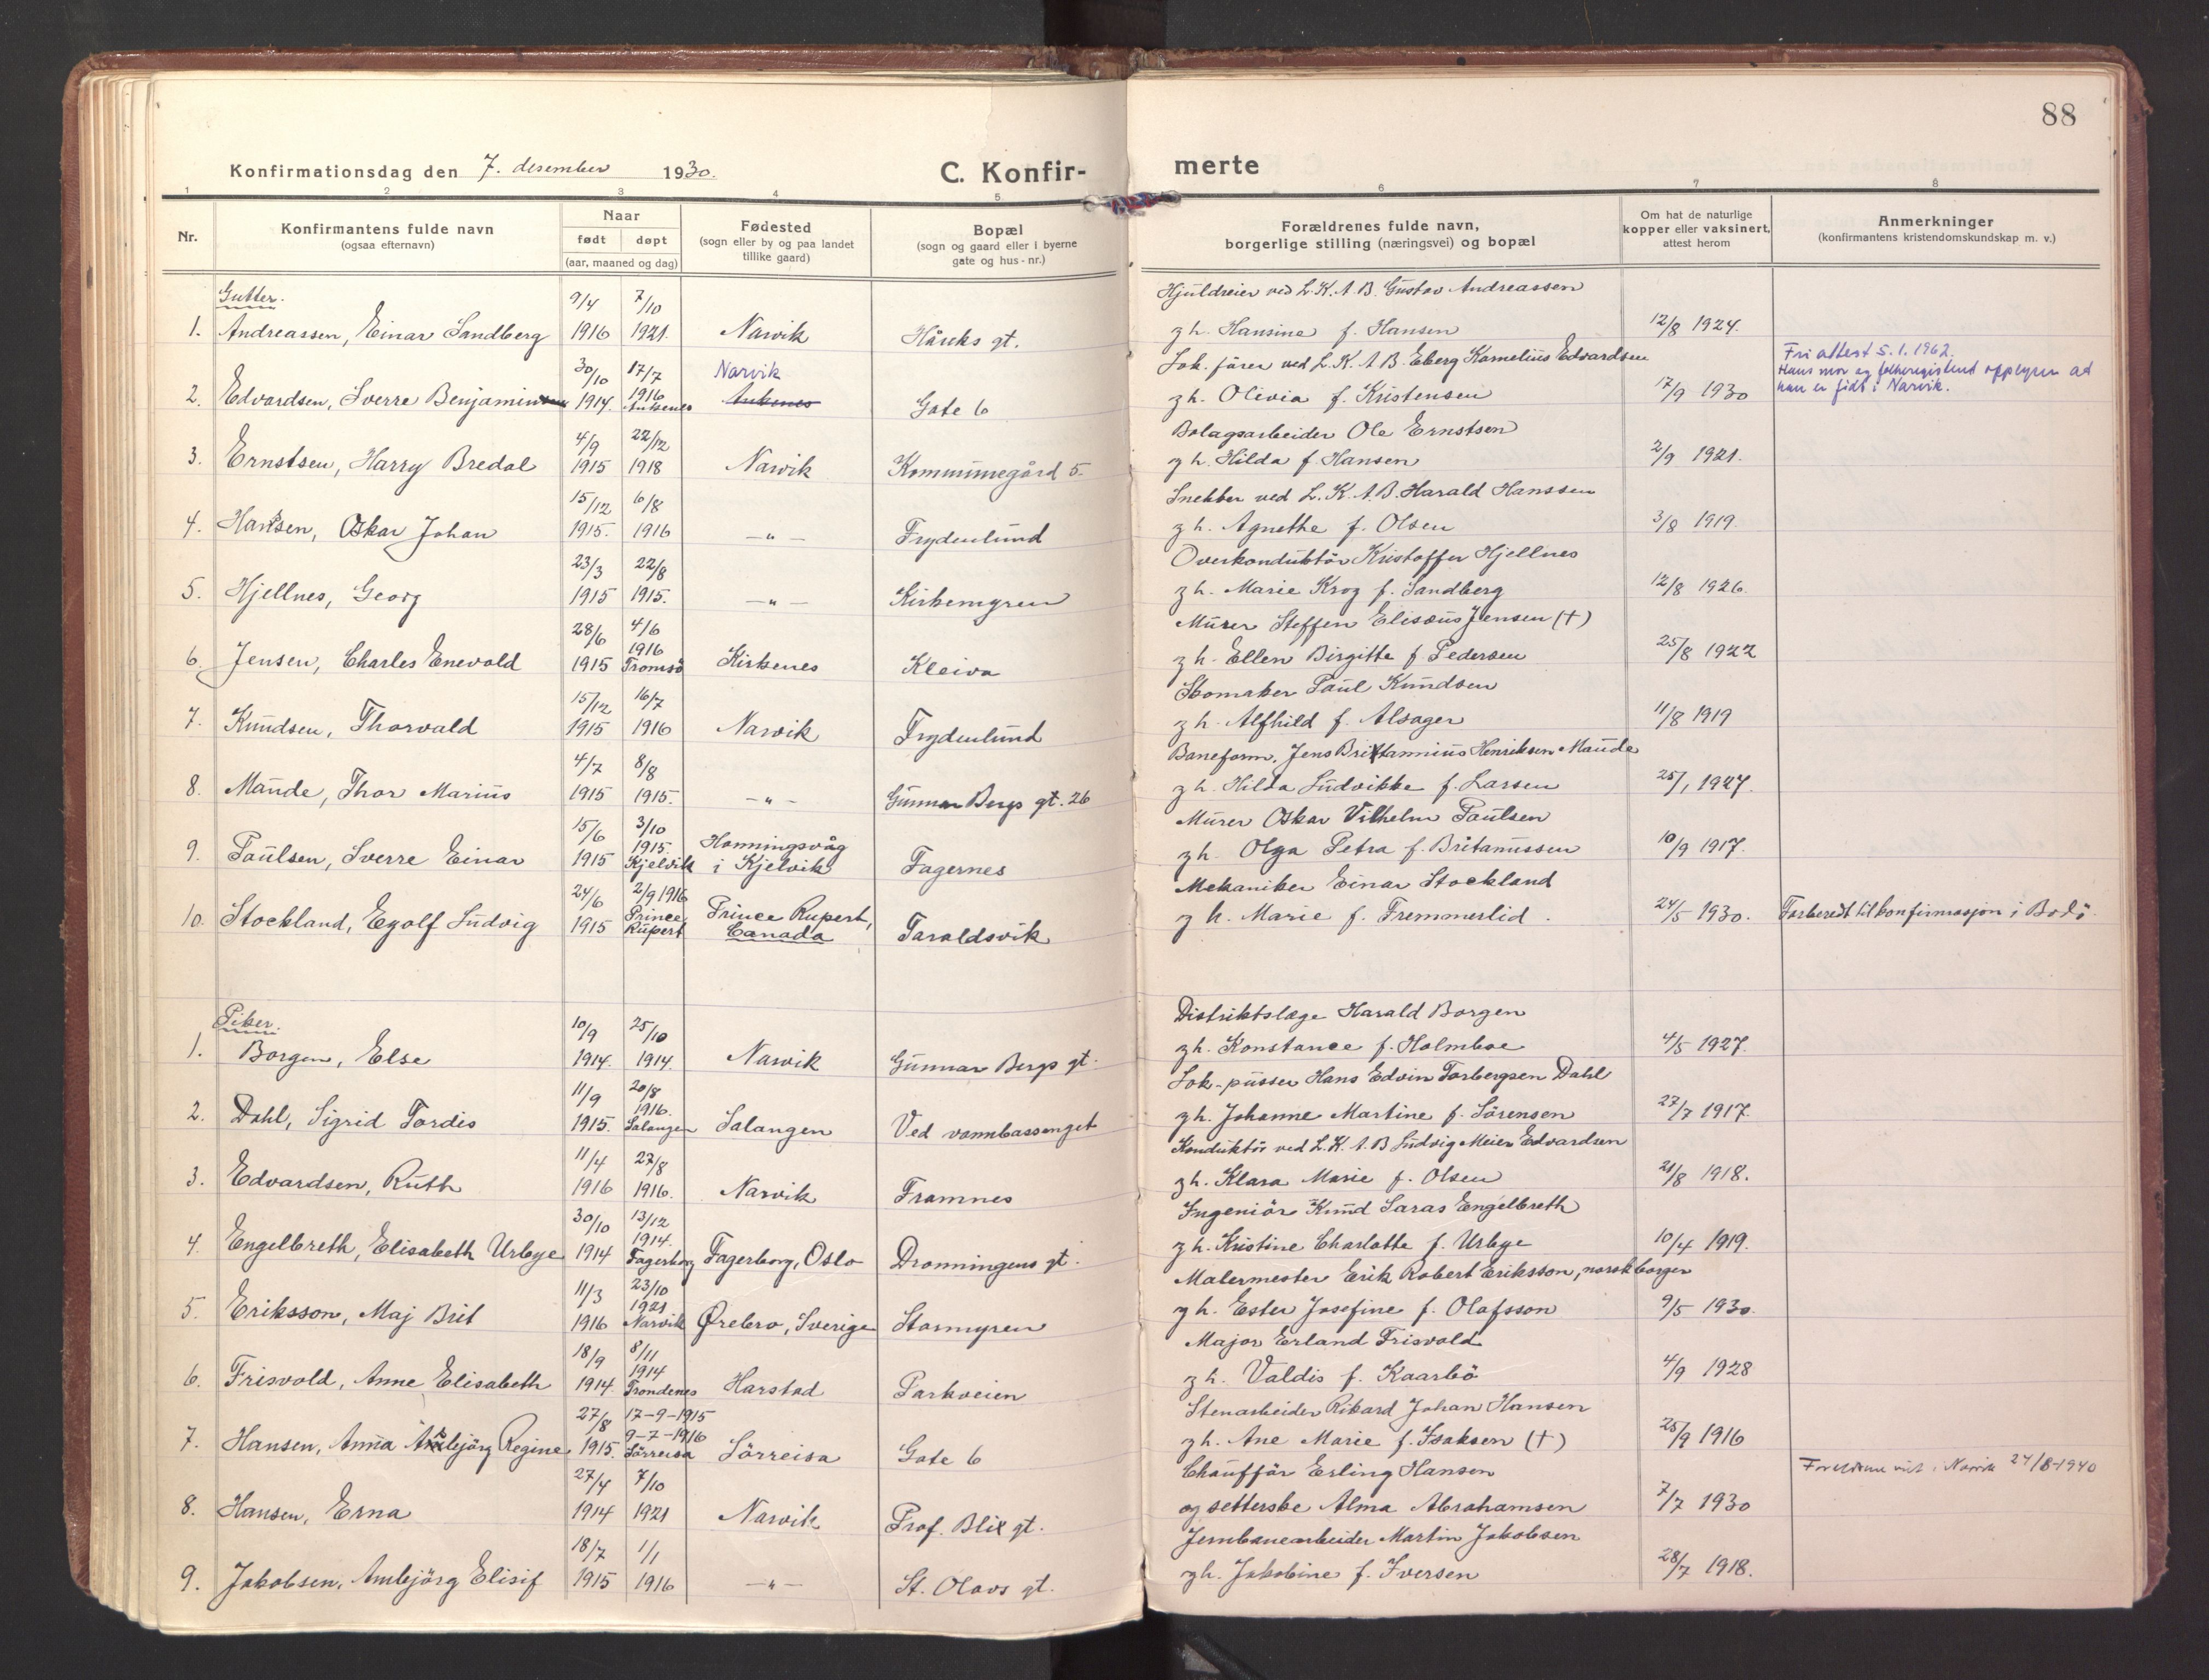 88
Konfirmationsdag den 7. desember 1930.
C. Konfir-
merte
1 2 3 4 5. 6 7 8
Nr.
Konfirmantens fulde navn
(ogsaa efternavn)
Naar
født døpt
(aar, maaned og dag)
Fødested
(sogn eller by og paa landet
tillike gaard)
Bopæl
(sogn og gaard eller i byerne
gate og hus-nr.)
Forældrenes fulde navn,
borgerlige stilling (næringsvei) og bopæl
Om hat de naturlige
kopper eller vaksinert,
attest herom
Anmerkninger
(konfirmantens kristendomskundskap m. v.)
Gutter.
9/4 7/10 Hjuldreier ved L.K.A.B. Gustav Andreassen
1. Andreassen, Einar Sandberg 1916 1921. Narvik Håreks gt. g h. Hansine f. Hansen 12/8 1924.
30/10 17/7 Narvik Lok. fører ved L.K.A.B. Eberg Kornelius Edvardsen
2. Edvardsen, Sverre Benjamin 1914. 1916 Ankenes Ankenes Gate 6 g h. Olivia f. Kristensen 17/9 1930
Fri attest 5.1.1962.
Hans mor og folkeregisteret opplyser at
han er født i Narvik.
4/9 22/12 Bolagsarbeider Ole Ernstsen
3. Ernstsen, Harry Bredal 1915 1918 Narvik Kommunegård 5. g h. Hilda f. Hansen 2/9 1921.
15/12 6/8 Snekker ved L.K.A.B. Harald Hanssen
4. Hanssen, Oskar Johan 1915. 1916 —"— Frydenlund g h. Agnethe f. Olsen 3/8 1919.
23/3 22/8 Overkonduktör Kristoffer Hjellnes
5. Hjellnes, Georg 1915 1915. —"— Kirkemyren g h. Marie Krog f. Sandberg 12/8 1926.
28/6 4/6 Murer Steffen Elisæus Jensen (†)
6. Jensen, Charles Enevold 1915 1916 Tromsö Kirkenes Kleiva g h. Ellen Birgitte f Pedersen 25/8 1922
15/12 16/7 Skomaker Paul Knudsen
7. Knudsen, Thorvald 1915 1916 Narvik Frydenlund g h. Alfhild f. Alsager 11/8 1919
4/7 8/8 Baneform. Jens Brittannius Henriksen Maude
8. Maude, Thor Marius 1915 1915. —"— Gunnar Bergs gt. 26 g h. Hilda Ludvikke f. Larsen 25/1 1927.
15/6 3/10 Murer Oskar Vilhelm Paulsen
9. Paulsen, Sverre Einar 1915 1915. Kjelvik Honningsvåg i Kjelvik Fagernes g h. Olga Petra f. Britanussen 10/9 1917.
24/6 2/9 1916 Mekaniker Einar Stockland
10. Stockland, Egolf Ludvig 1915 Prince Rupert Prince Rupert, Canada Taraldsvik g h. Marie f. Fremmerlid. 24/5 1930. Forberedt til konfirmasjon i Bodö.
Piker.
10/9 25/10 Distriktslæge Harald Borgen
1. Borgen, Else 1914. 1914. Narvik Gunnar Bergs gt. g h. Konstance f. Holmboe 4/5 1927.
11/9 20/8 Lok-pusser Hans Edvin Torbergsen Dahl
2. Dahl, Sigrid Tordis 1915. 1916. Salangen Salangen Ved vannbassenget g h. Johanne Martine f. Sörensen 27/7 1917.
11/4 27/8 Konduktör ved L.K.A.B Ludvig Meier Edvardsen
3. Edvardsen, Ruth 1916 1916. Narvik Framnes g h. Klara Marie f. Olsen 21/8 1918.
30/10 13/12 Ingeniör Knud Saras Engelbreth
4. Engelbreth, Elisabeth Urbye 1914 1914. Fagerborg Fagerborg, Oslo Dronningens gt. g h. Kristine Charlotte f. Urbye 10/4 1919.
11/3 23/10 Malermester Erik Robert Eriksson, norsk borger
5. Eriksson, Maj Brit 1916 1921 Narvik Ørebro, Sverige Stormyren g h. Ester Josefine f. Olofsson 9/5 1930.
18/9 8/11 Major Erland Frisvold
6. Frisvold, Anne Elisabeth 1914 1914 Trondenes Harstad Parkveien g h. Valdis f. Kaarbö 4/9 1928
27/8 17-9-1915 Stenarbeider Rikard Johan Hansen
7. Hansen, Anna Regine 1915. 9-7-1916 Sörreisa Sörreisa Gate 6 g h. Ane Marie f. Isaksen (†) 25/9 1916
27/4 7/10 Chauffør Erling Hansen Foreldrene viet i Narvik 24/8-1940
8. Hansen, Erna 1914 1921 Narvik Prof. Blix gt. og setterske Alma Abrahamsen 7/7 1930
18/7 1/1 Jernbanearbeider Martin Jakobsen
9. Jakobsen, Ambjörg Elisif 1915 1916 —"— St. Olavs gt. g h. Jakobine f. Iversen 28/7 1918.